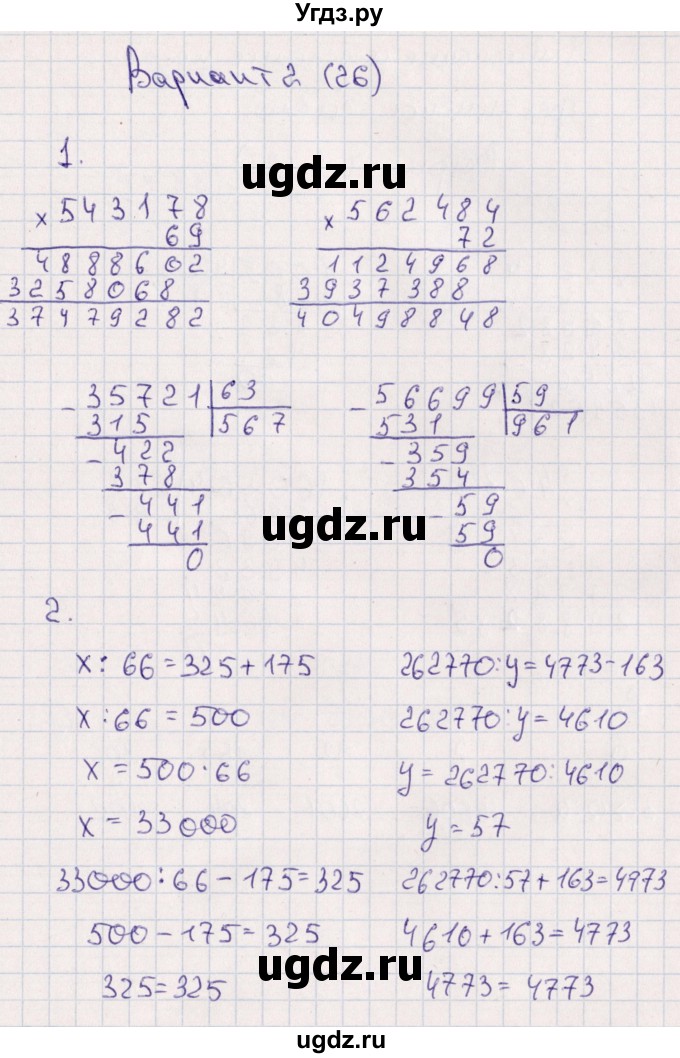 Угдз.ру
Вариант 2 (26)
1.
ugdz.ru
× 543178
69
4888602
3258068
37479282
× 562484
72
1124968
3937388
40498848
- 35721 | 63
315 | 567
- 422
378
- 441
441
0
- 56699 | 59
531 | 961
- 359
354
- 59
59
0
ugdz.ru
2.
x : 66 = 325 + 175
x : 66 = 500
x = 500 · 66
x = 33000
33000 : 66 - 175 = 325
500 - 175 = 325
325 = 325
262770 : y = 4773 - 163
262770 : y = 4610
y = 262770 : 4610
y = 57
262770 : 57 + 163 = 4973
4610 + 163 = 4773
4773 = 4773
ugdz.ru
ugdz.ru
ugdz.ru